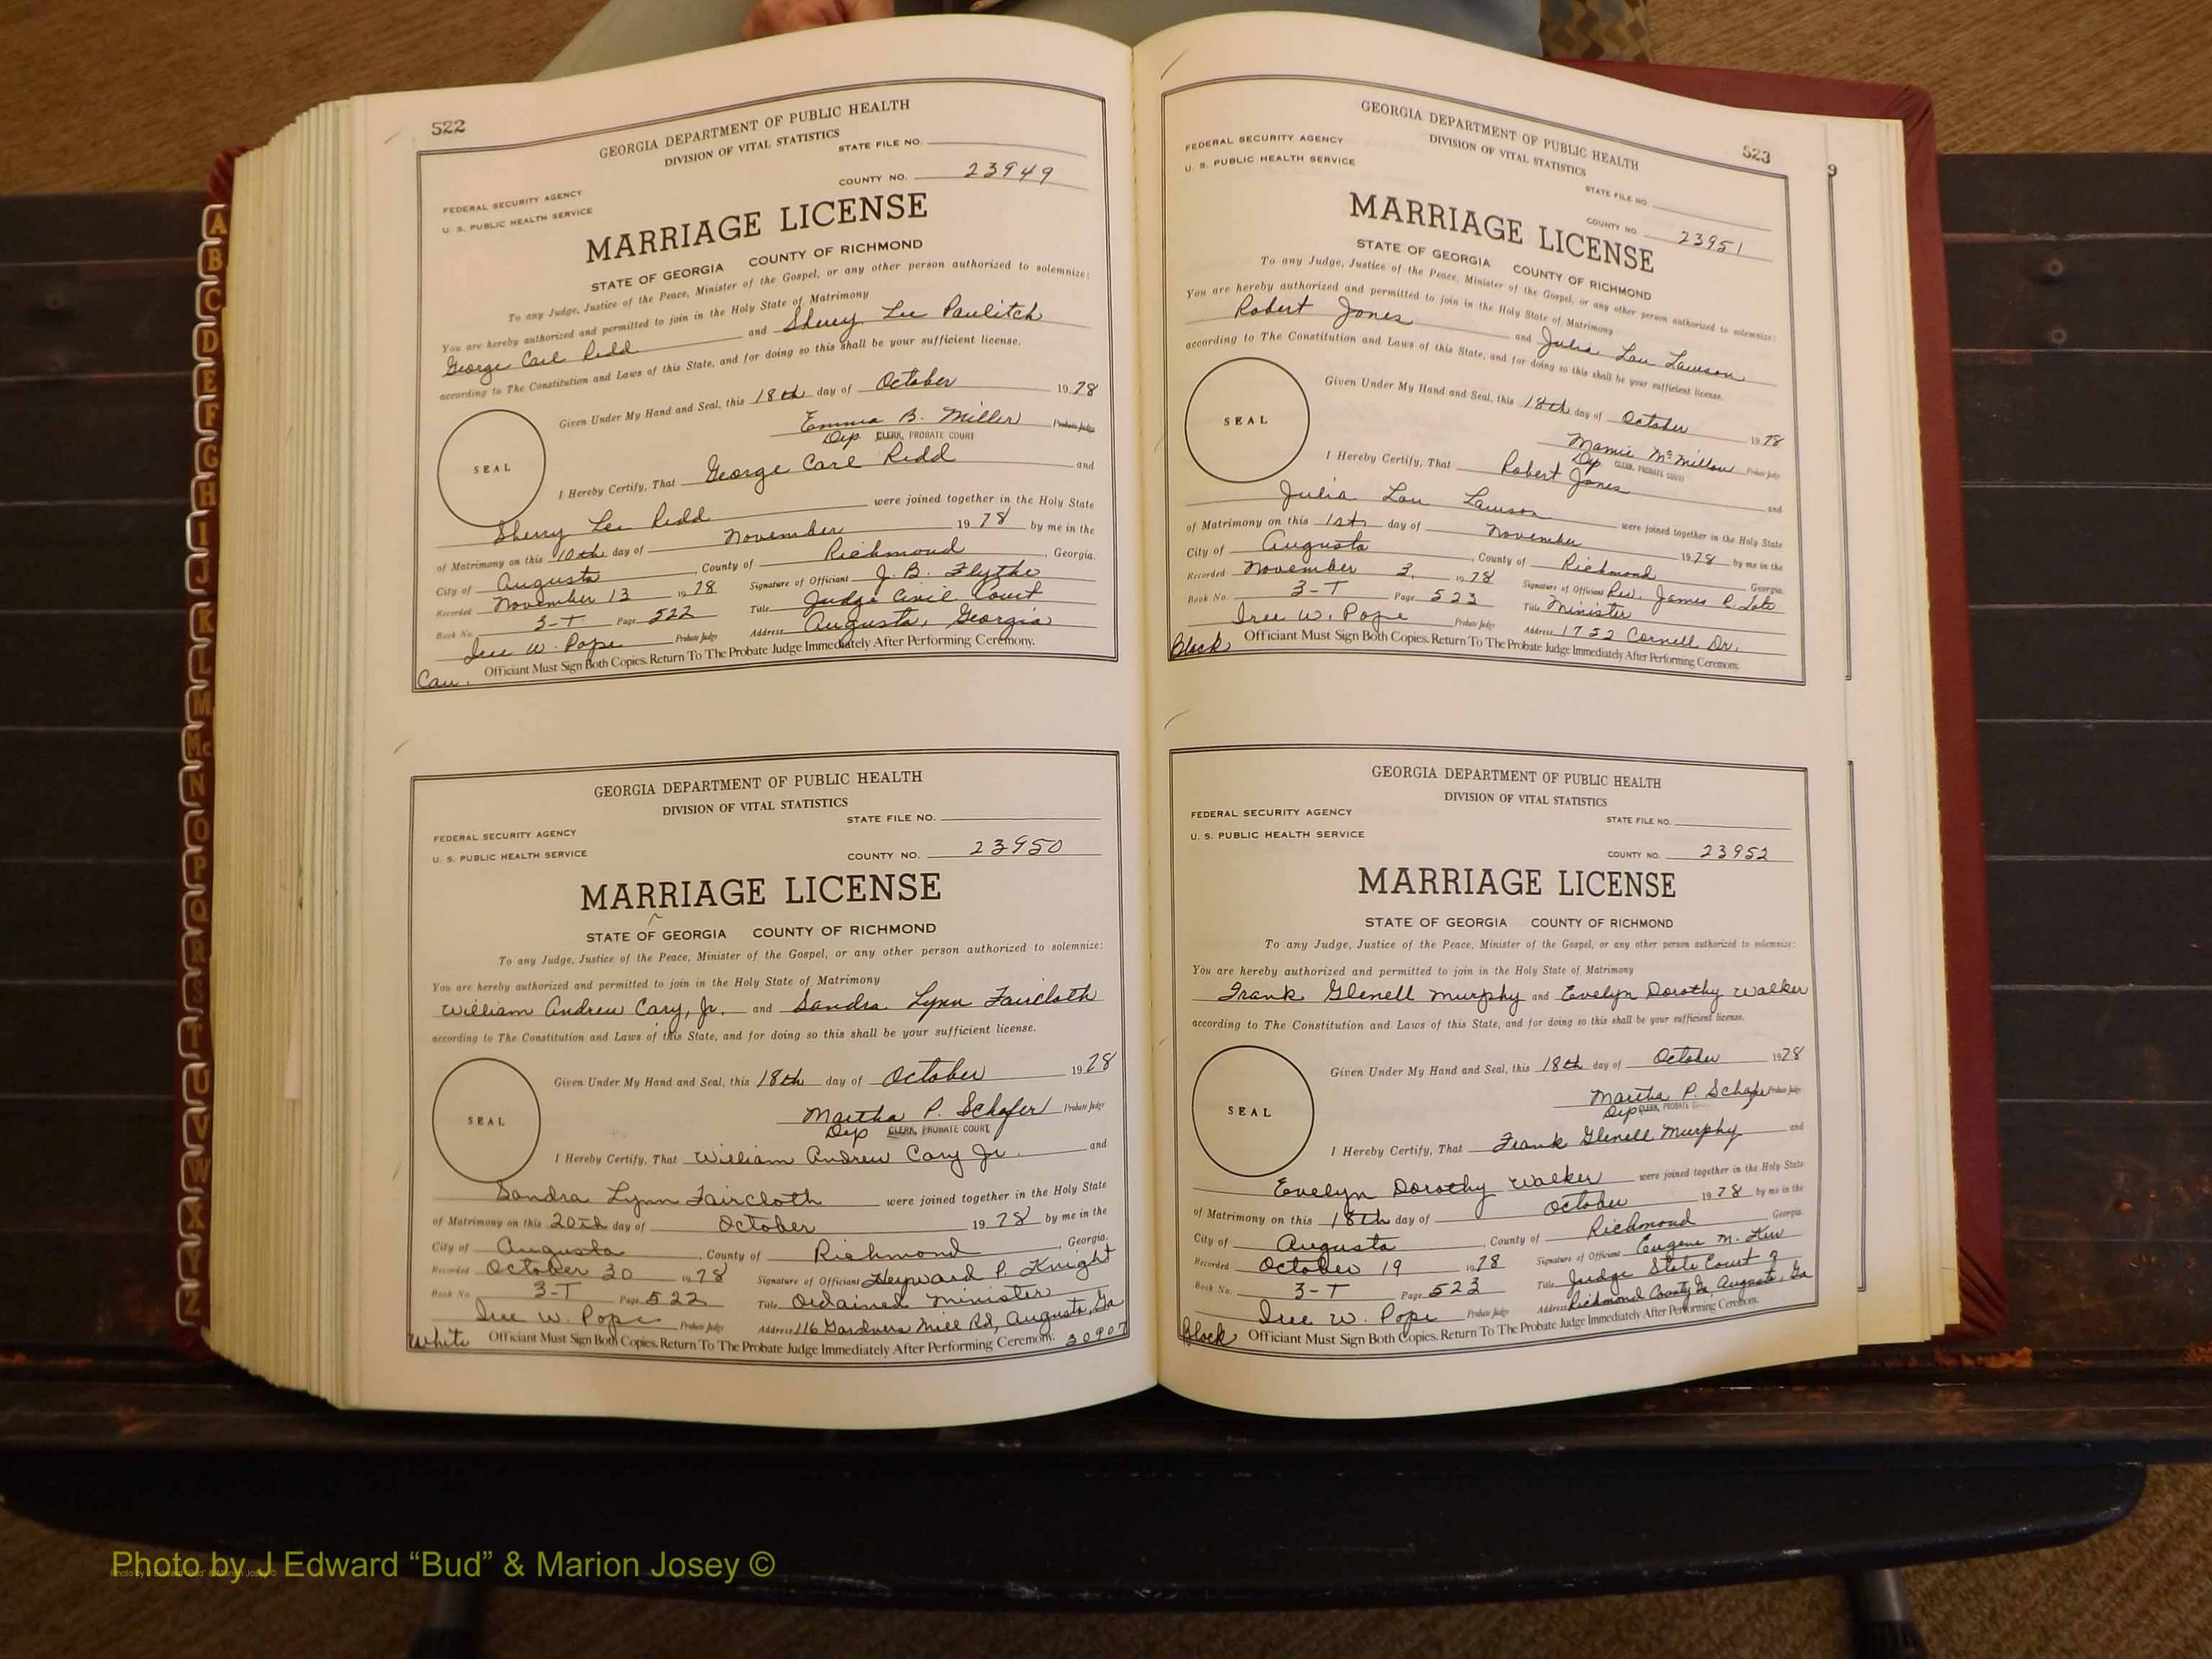 522
GEORGIA DEPARTMENT OF PUBLIC HEALTH
DIVISION OF VITAL STATISTICS
STATE FILE NO.
FEDERAL SECURITY AGENCY
U. S. PUBLIC HEALTH SERVICE
COUNTY NO. 23949
MARRIAGE LICENSE
STATE OF GEORGIA COUNTY OF RICHMOND
To any Judge, Justice of the Peace, Minister of the Gospel, or any other person authorized to solemnize:
You are hereby authorized and permitted to join in the Holy State of Matrimony
George Carl Redd and Sherry Lee Paulitch
according to The Constitution and Laws of this State, and for doing so this shall be your sufficient license.
Given Under My Hand and Seal, this 18th day of October 1978
Emmia B. Miller Probate Judge
Dep CLERK, PROBATE COURT
SEAL
I Hereby Certify, That George Carl Redd and
Sherry Lee Redd were joined together in the Holy State
of Matrimony on this 10th day of November 1978 by me in the
City of Augusta, County of Richmond, Georgia.
Recorded November 13 1978 Signature of Officiant J. B. Flythe
Book No. 3-T Page 522 Title Judge Civil Court
Iree W. Pope Probate Judge Address Augusta, Georgia
Cau. Officiant Must Sign Both Copies. Return To The Probate Judge Immediately After Performing Ceremony.
GEORGIA DEPARTMENT OF PUBLIC HEALTH
DIVISION OF VITAL STATISTICS
STATE FILE NO.
FEDERAL SECURITY AGENCY
U. S. PUBLIC HEALTH SERVICE
COUNTY NO. 23950
MARRIAGE LICENSE
STATE OF GEORGIA COUNTY OF RICHMOND
To any Judge, Justice of the Peace, Minister of the Gospel, or any other person authorized to solemnize:
You are hereby authorized and permitted to join in the Holy State of Matrimony
William Andrew Cary, Jr. and Sandra Lynn Faircloth
according to The Constitution and Laws of this State, and for doing so this shall be your sufficient license.
Given Under My Hand and Seal, this 18th day of October 1978
Martha P. Schafer Probate Judge
Dep CLERK, PROBATE COURT
SEAL
I Hereby Certify, That William Andrew Cary Jr. and
Sandra Lynn Faircloth were joined together in the Holy State
of Matrimony on this 20th day of October 1978 by me in the
City of Augusta, County of Richmond, Georgia.
Recorded October 30 1978 Signature of Officiant Heyward P. Knight
Book No. 3-T Page 522 Title Ordained Minister
Iree W. Pope Probate Judge Address 116 Gardners Mill Rd, Augusta, Ga
White Officiant Must Sign Both Copies. Return To The Probate Judge Immediately After Performing Ceremony. 30907
523
GEORGIA DEPARTMENT OF PUBLIC HEALTH
DIVISION OF VITAL STATISTICS
FEDERAL SECURITY AGENCY
U. S. PUBLIC HEALTH SERVICE
STATE FILE NO.
COUNTY NO. 23951
MARRIAGE LICENSE
STATE OF GEORGIA COUNTY OF RICHMOND
To any Judge, Justice of the Peace, Minister of the Gospel, or any other person authorized to solemnize:
You are hereby authorized and permitted to join in the Holy State of Matrimony
Robert Jones and Julia Lou Lawson
according to The Constitution and Laws of this State, and for doing so this shall be your sufficient license.
Given Under My Hand and Seal, this 18th day of October 1978
Mamie McMillon Probate Judge
Dep CLERK, PROBATE COURT
SEAL
I Hereby Certify, That Robert Jones and
Julia Lou Lawson were joined together in the Holy State
of Matrimony on this 1st day of November 1978 by me in the
City of Augusta, County of Richmond Georgia.
Recorded November 3, 1978 Signature of Officiant Rev. James R.
Book No. 3-T Page 523 Title Minister
Iree W. Pope Probate Judge Address 1752 Cornell Dr.
Black Officiant Must Sign Both Copies. Return To The Probate Judge Immediately After Performing Ceremony.
GEORGIA DEPARTMENT OF PUBLIC HEALTH
DIVISION OF VITAL STATISTICS
FEDERAL SECURITY AGENCY
STATE FILE NO.
U. S. PUBLIC HEALTH SERVICE
COUNTY NO. 23952
MARRIAGE LICENSE
STATE OF GEORGIA COUNTY OF RICHMOND
To any Judge, Justice of the Peace, Minister of the Gospel, or any other person authorized to solemnize:
You are hereby authorized and permitted to join in the Holy State of Matrimony
Frank Glenell Murphy and Evelyn Dorothy Walker
according to The Constitution and Laws of this State, and for doing so this shall be your sufficient license.
Given Under My Hand and Seal, this 18th day of October 1978
Martha P. Schafer Probate Judge
Dep CLERK, PROBATE
SEAL
I Hereby Certify, That Frank Glenell Murphy and
Evelyn Dorothy Walker were joined together in the Holy State
of Matrimony on this 18th day of October 1978 by me in the
City of Augusta, County of Richmond Georgia.
Recorded October 19 1978 Signature of Officiant Eugene M. Kerr
Book No. 3-T Page 523 Title Judge State Court of
Iree W. Pope Probate Judge Address Richmond County Ga, Augusta, Ga
Black Officiant Must Sign Both Copies. Return To The Probate Judge Immediately After Performing Ceremony.
9
A
B
C
D
E
F
G
H
I
J
K
L
M
Mc
N
O
P
Q
R
S
T
U
V
W
X
Y
Z
Photo by J Edward “Bud” & Marion Josey ©
Photo by J Edward “Bud” & Marion Josey ©